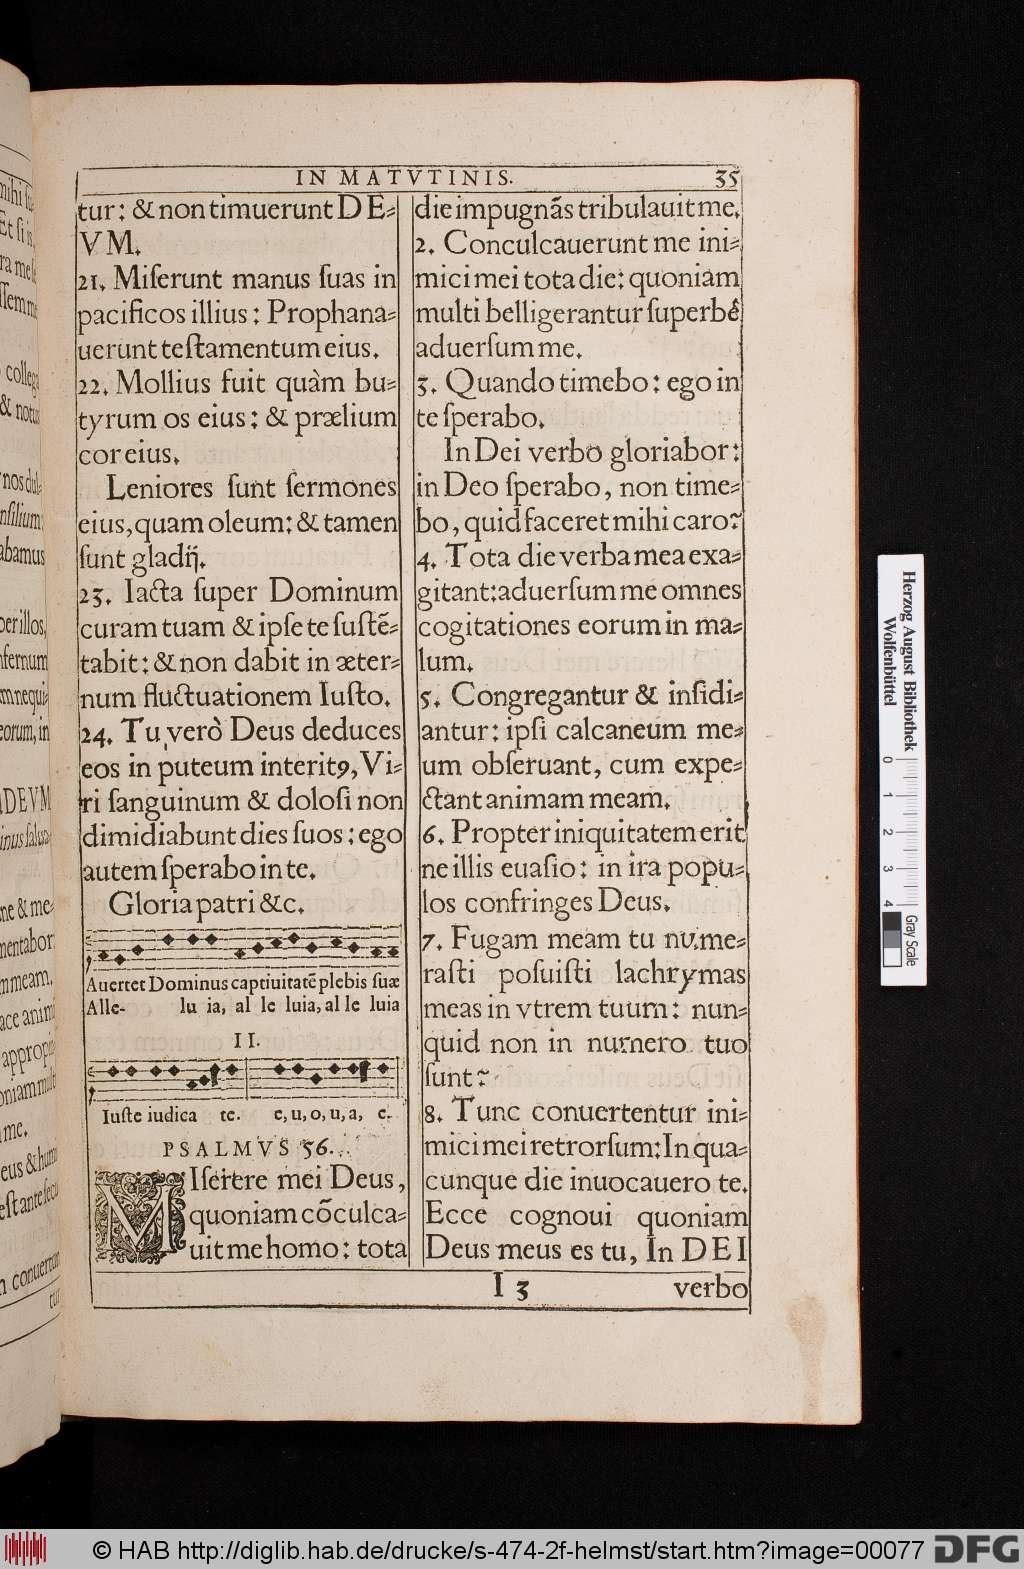 IN MATVTINIS. 35
tur: & non timuerunt DE=
VM.
21. Miſerunt manus ſuas in
pacificos illius: Prophana=
uerunt teſtamentum eius.
22. Mollius fuit quàm bu=
tyrum os eius: & prælium
cor eius.
Leniores ſunt ſermones
eius, quam oleum: & tamen
ſunt gladij.
23. Iacta ſuper Dominum
curam tuam & ipſe te ſuſtē=
tabit: & non dabit in æter=
num fluctuationem Iuſto.
24. Tu verò Deus deduces
eos in puteum interit9, Vi=
ri ſanguinum & doloſi non
dimidiabunt dies ſuos: ego
autem ſperabo in te.
Gloria patri &c.
Auertet Dominus captiuitatē plebis ſuæ
Alle- lu ia, al le luia, al le luia
II.
Iuſte iudica te. e, u, o, u, a, e.
PSALMVS 56.
MIſerere mei Deus,
quoniam cōculca=
uit me homo: tota
die impugnãs tribulauit me.
2. Conculcauerunt me ini=
mici mei tota die: quoniam
multi belligerantur ſuperbè
aduerſum me.
3. Quando timebo: ego in
te ſperabo.
In Dei verbo gloriabor:
in Deo ſperabo, non time=
bo, quid faceret mihi caro?
4. Tota die verba mea exa=
gitant: aduerſum me omnes
cogitationes eorum in ma=
lum.
5. Congregantur & inſidi=
antur: ipſi calcaneum me=
um obſeruant, cum expe=
ctant animam meam.
6. Propter iniquitatem erit
ne illis euaſio: in ira popu=
los confringes Deus.
7. Fugam meam tu nume=
raſti poſuiſti lachrymas
meas in vtrem tuum: nun=
quid non in numero tuo
ſunt?
8. Tunc conuertentur ini=
mici mei retrorſum: In qua=
cunque die inuocauero te.
Ecce cognoui quoniam
Deus meus es tu, In DEI
I 3 verbo
Herzog August Bibliothek
Wolfenbüttel
0 1 2 3 4 Gray Scale
© HAB http://diglib.hab.de/drucke/s-474-2f-helmst/start.htm?image=00077 DFG